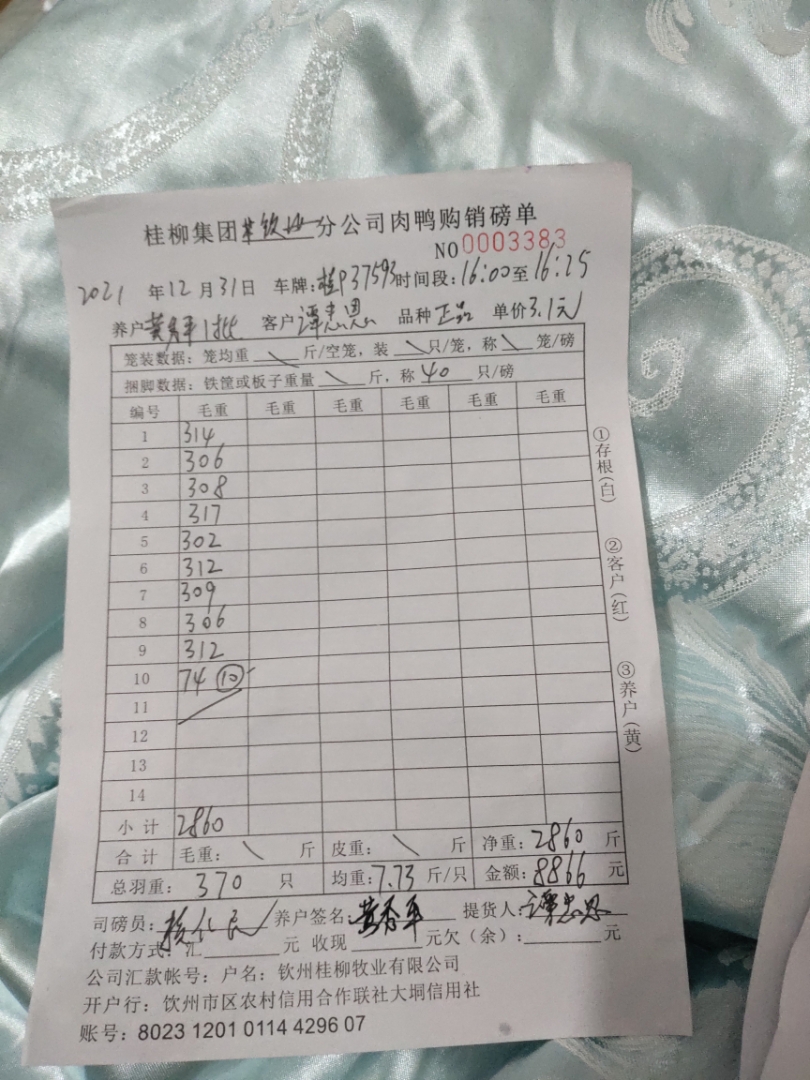 桂柳集团 钦州 分公司肉鸭购销磅单
NO 0003383
2021 年 12 月 31 日 车牌: 桂P37593 时间段: 16:00 至 16:25
养户 黄秀平1批 客户 谭忠恩 品种 正品 单价 3.1元
笼装数据: 笼均重 \ 斤/空笼, 装 \ 只/笼, 称 \ 笼/磅
捆脚数据: 铁筐或板子重量 \ 斤, 称 40 只/磅
编号 毛重 毛重 毛重 毛重 毛重 毛重
1 314
2 306
3 308
4 317
5 302
6 312
7 309
8 306
9 312
10 74 ⑩
11
12
13
14
小计 2860
合计 毛重: \ 斤 皮重: \ 斤 净重: 2860 斤
总羽重: 370 只 均重: 7.73 斤/只 金额: 8866 元
司磅员: 养户签名: 黄秀平 提货人: 谭忠恩
付款方式: 汇 元 收现 元欠(余): 元
公司汇款帐号: 户名: 钦州桂柳牧业有限公司
开户行: 钦州市区农村信用合作联社大垌信用社
账号: 8023 1201 0114 4296 07
①存根(白)
②客户(红)
③养户(黄)